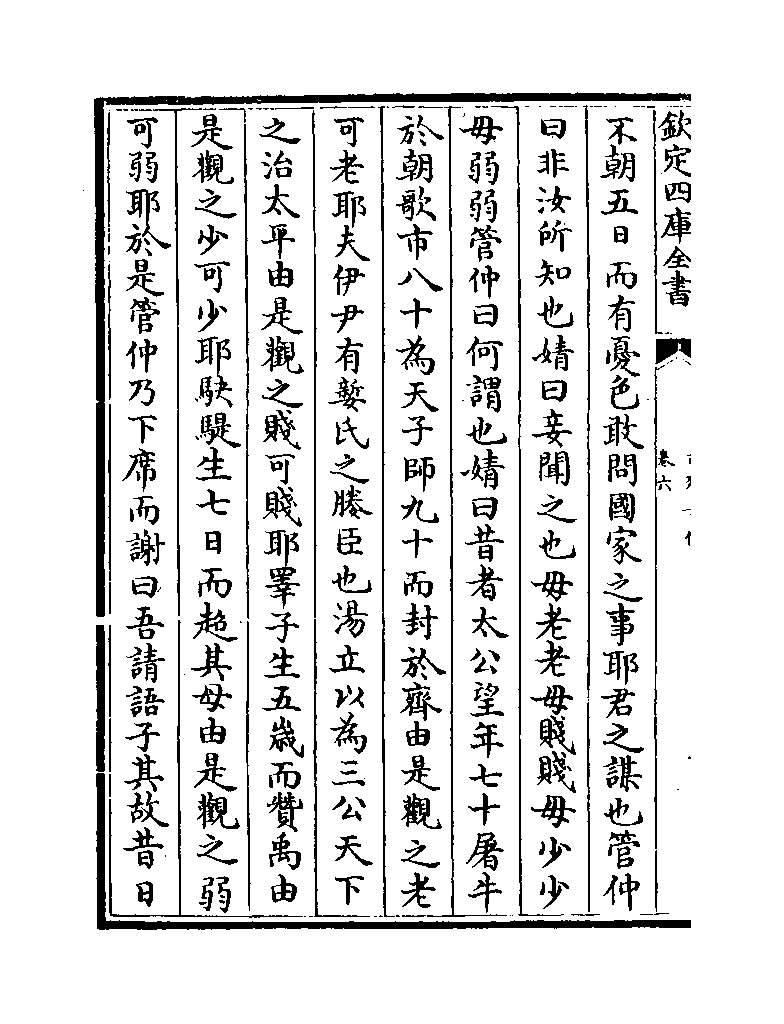 欽定四庫全書
卷六
不朝五日而有憂色敢問國家之事耶君之謀也管仲
曰非汝所知也婧曰妾聞之也毋老老毋賤賤毋少少
毋弱弱管仲曰何謂也婧曰昔者太公望年七十屠牛
於朝歌市八十為天子師九十而封於齊由是觀之老
可老耶夫伊尹有㜪氏之媵臣也湯立以為三公天下
之治太平由是觀之賤可賤耶睪子生五歲而贊禹由
是觀之少可少耶駃騠生七日而超其母由是觀之弱
可弱耶於是管仲乃下席而謝曰吾請語子其故昔日